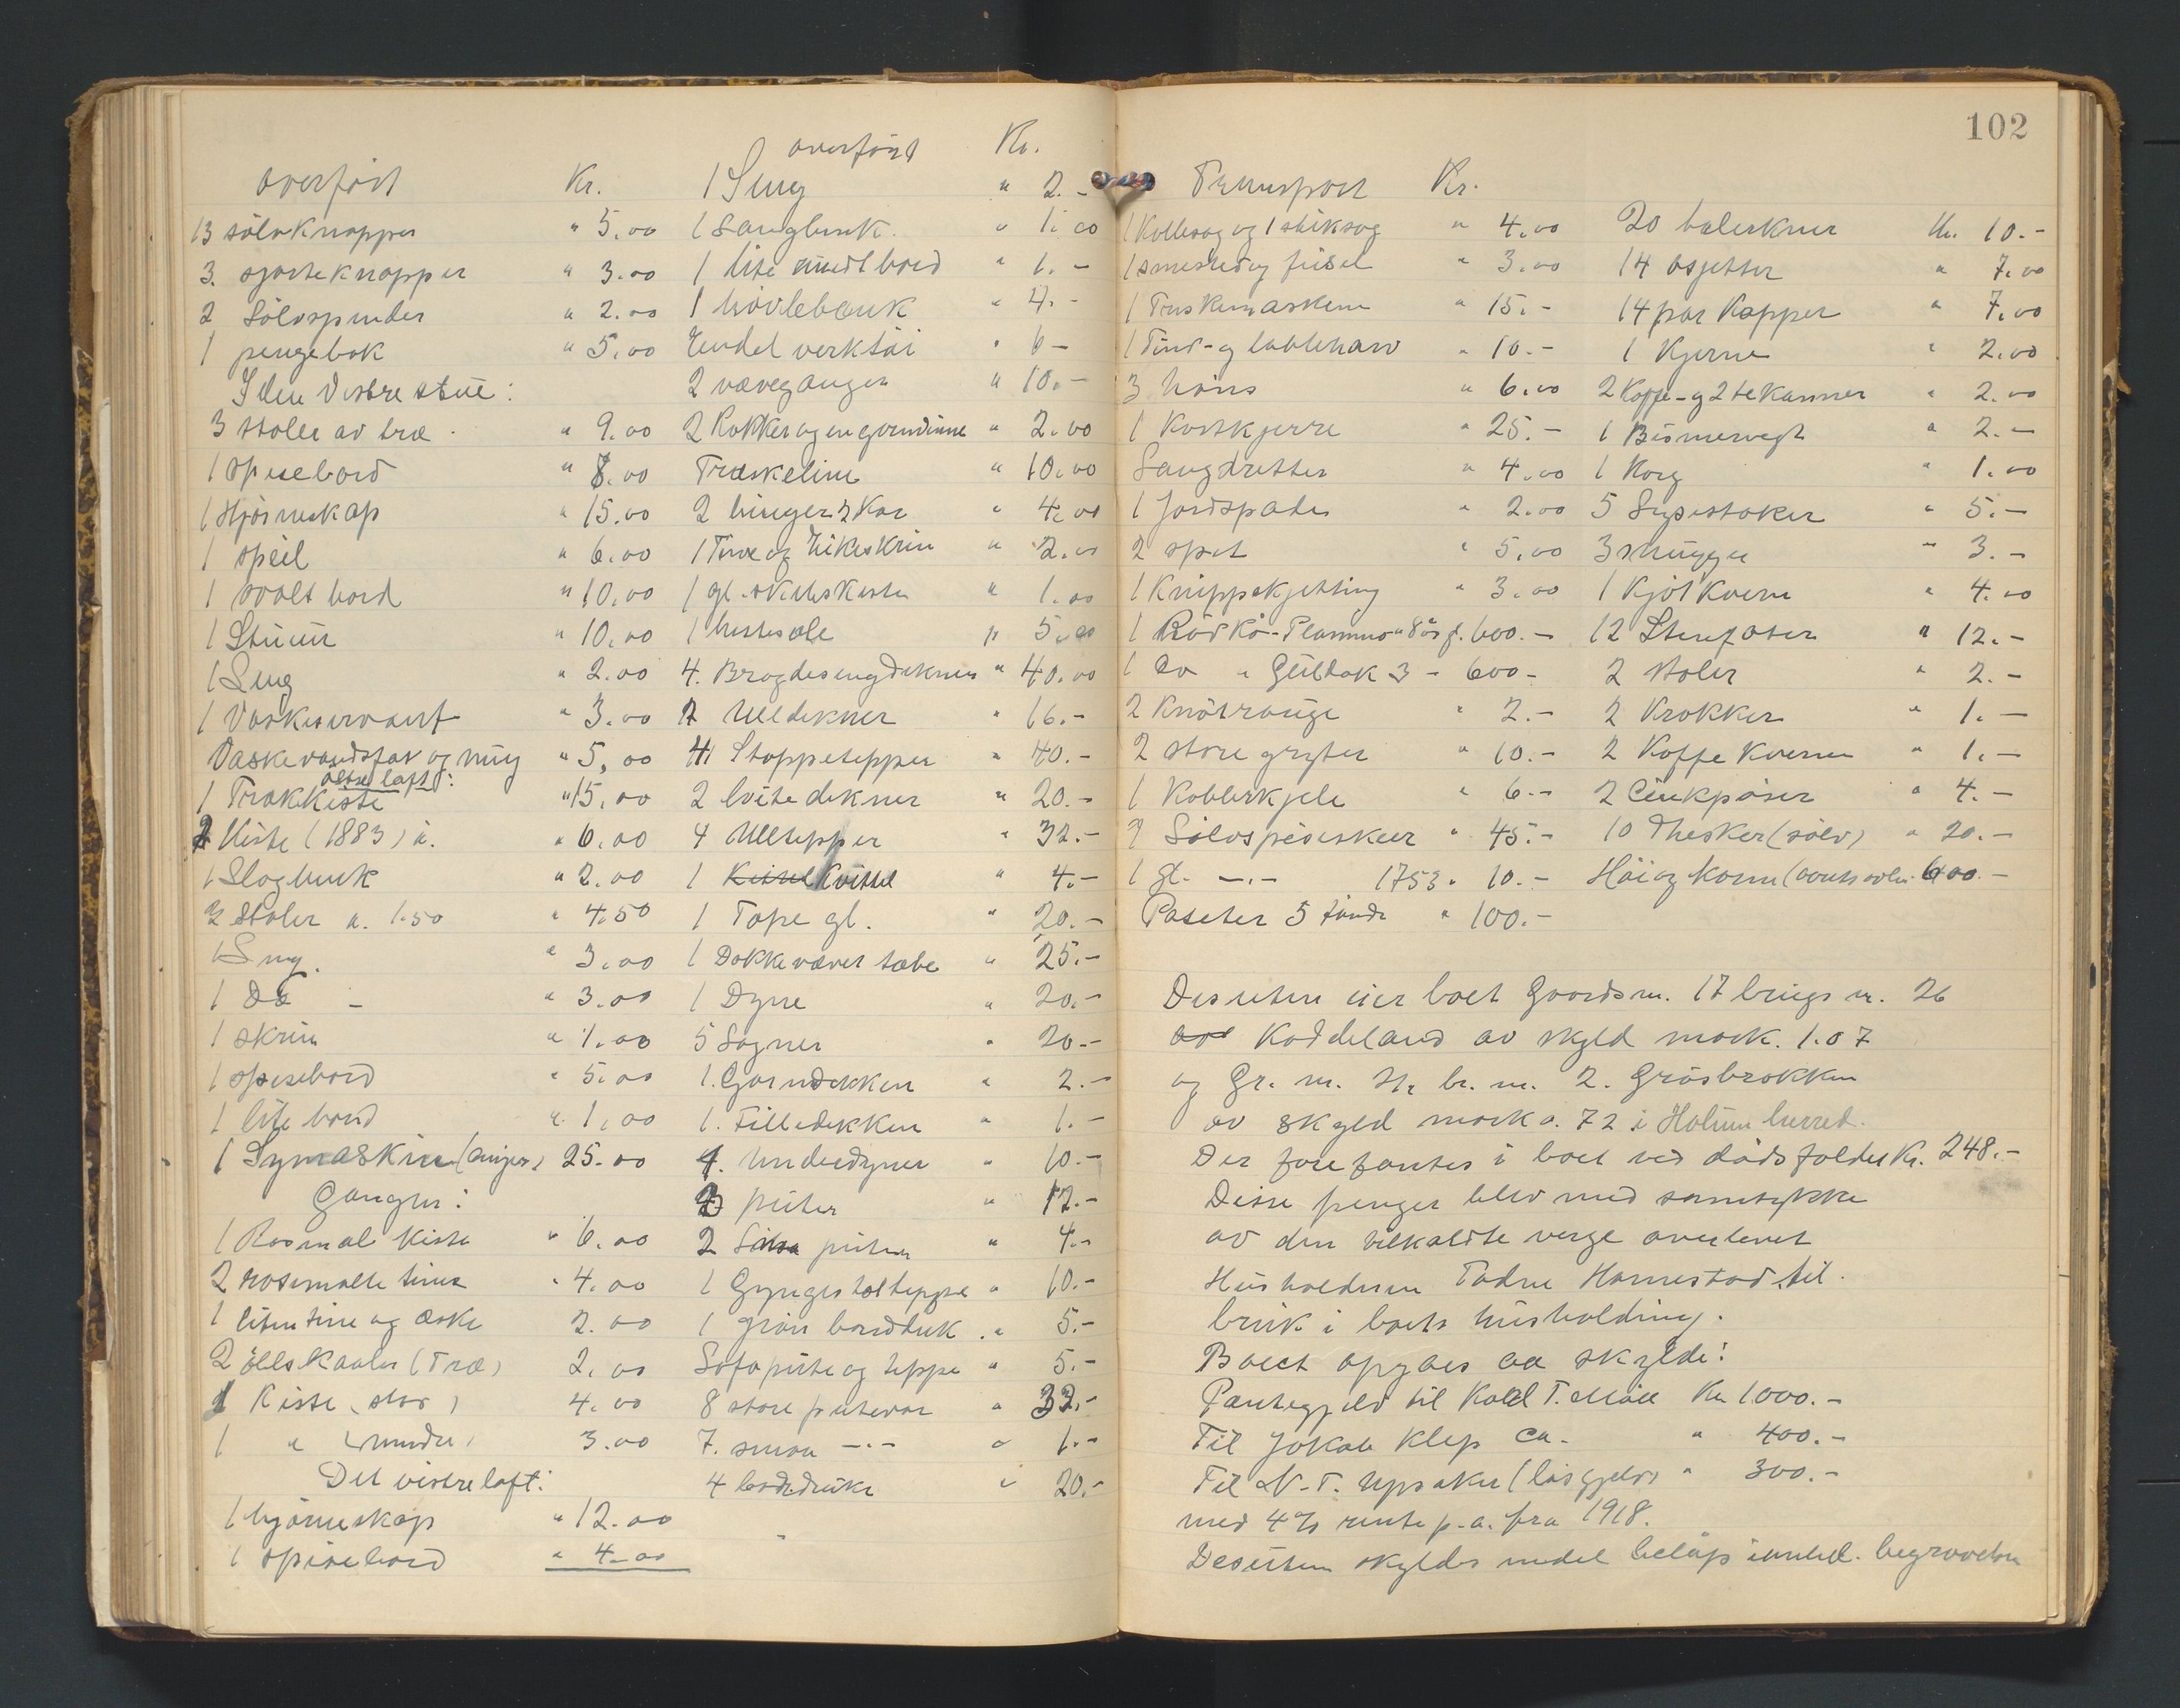 overført Kr.
13 sølvknapper " 5.00
3. sjorteknapper " 3.00
2 Sølvspender " 2.00
1 pengebok " 5.00
I den Vestre stue:
3 stoler av træ " 9.00
1 spisebord " 8.00
1 Hjørneskap " 15.00
1 speil " 6.00
1 ovalt bord " 10.00
1 Stuur " 10.00
1 Seng " 2.00
1 Vaskeservant " 3.00
Vaskevandsfat og mug " 5,00
østre loft:
1 Trækkiste " 15.00
1 Kiste (1883) " 6.00
1 Slagbenk " 2.00
3 Stoler a. 1.50 " 4.50
1 Seng. " 3.00
1 Do - " 3.00
1 skrin " 1.00
1 spisebord " 5.00
1 lite bord " 1,00
1 Symaskin (Singer) 25.00
Gangen:
1 Rosmalt kiste " 6.00
2 rosemalte tiner " 4.00
1 liten tine og æske 2.00
2 øllskaaler (Træ) 2.00
1 Kiste (stor) 4.00
1 " (mindre) 3.00
Det vestre loft:
1 hjørneskap " 12.00
1 spisebord " 4.00
overført Kr.
1 Seng " 2.-
1 Langbenk " 1.00
1 lite rundt bord " 1.-
1 høvlebenk " 4.-
Endel verktøi " 6-
2 væveganger " 10.-
2 Rokker og en garnvinne " 2.00
Træskeline " 10.00
2 binger 2 Kar " 4.00
1 Tine og " 2.00
1 gl. skibskiste " 1.00
1 hestesale " 5.00
4. Brogdesengdekner " 40.00
2 Ulldekner " 16.-
4 Stoppetepper " 40.-
2 hvite dekner " 20.-
4 Ulltepper " 32.-
1 Kvittel " 4.-
1 Tæpe gl. " 20.-
1 Dokkevævet tæbe " 25.-
1 Dyne " 20.-
5 Lagner " 20.-
1. Garndekken " 2.-
1. Filledekken " 1.-
4. Underdyner " 10.-
puter " 12.-
2 puter " 4.-
1 Gyngestolteppe " 10.-
1 grøn bordduk " 5.-
Sofapute og teppe " 5.-
8 store putevar " 32.-
7. smaa -"- " 1.-
4 bordduke " 20.-
102
Transport Kr.
1 Kollesag og 1 stiksag " 4.00
" 3.00
1 Truskemaskine " 15.-
1 Find- og labbeharv " 10.-
3 høns " 6.00
1 Kostkjerre " 25.-
Langdretter " 4.00
1 Jordspader " 2.00
2 spet " 5.00
1 Knippekjetting " 3.00
1 Rød Ko - Plamma " 8 år f. 600.-
1 Do " Guldok 3 - 600-
2 Knotrauge " 2.-
2 store gryter " 10.-
1 Kobberkjele " 6.-
9 Sølvspiseskeer " 45.-
1 gl. -"- 1753 " 10.-
Poteter 5 tønde " 100.-
20 talerkner Kr. 10.-
14 Asjetter " 7.00
14 par Kopper " 7.00
1 Kjerne " 2.00
2 Kaffe- og 2 tekanner " 2.00
1 Bismervegt " 2.-
1 Korg " 1.00
5 Lysestaker " 5.-
3 mugger " 3.-
1 Kjøtkvern " 4.00
12 Stenfater " 12.-
2 Stoler " 2.-
2 Krokker " 1.-
2 Kaffe Kverner " 1.-
2 Cinkpøser " 4.-
10 Theskeer (sølv) " 20.-
Høi og Korn ( 600.-
Desuten eier boet Gaardsnr. 17 brugs nr. 26
Koddeland av skyld mark. 1.07
og Gr. nr. br. nr. 2. Gråsbrokken
av skyld mark 0.72 i Holum herred.
Der forefantes i boet ved dødsfaldet Kr. 248.-
Disse penger blev med samtykke
av den tilkaldte verge overlevet
Husholdersen Tadne Homestad til
bruk i boets husholdning.
Boet opgaes aa skylde:
Pantegjeld til Kald T. Møll Kr 1.000.-
Til Jokab Klep ca. " 400.-
Til N. T. Upsaker (løsgjeld) " 300.-
med 4% rente p.a. fra 1918.
Desuten skyldes endel beløp begravelsen